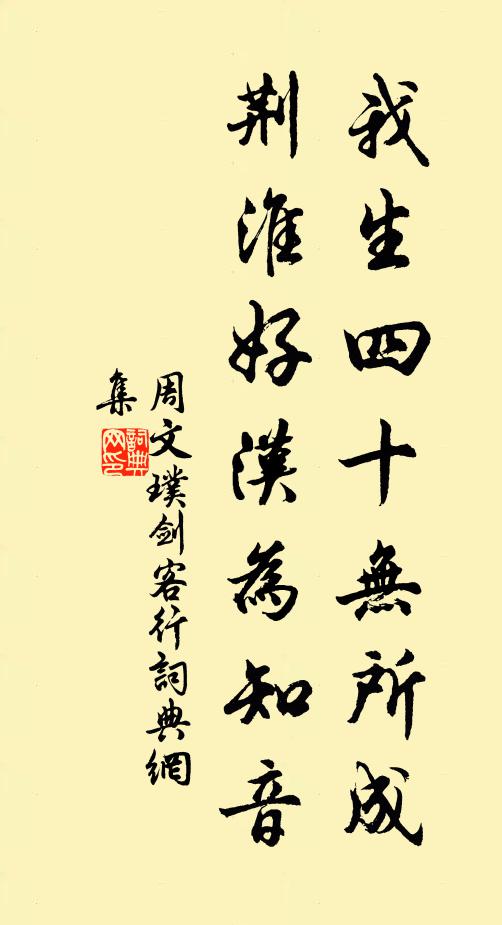 我生四十無所成
荆淮好漢為知音
周文璞劍客行詞典網
集
詞典
网印